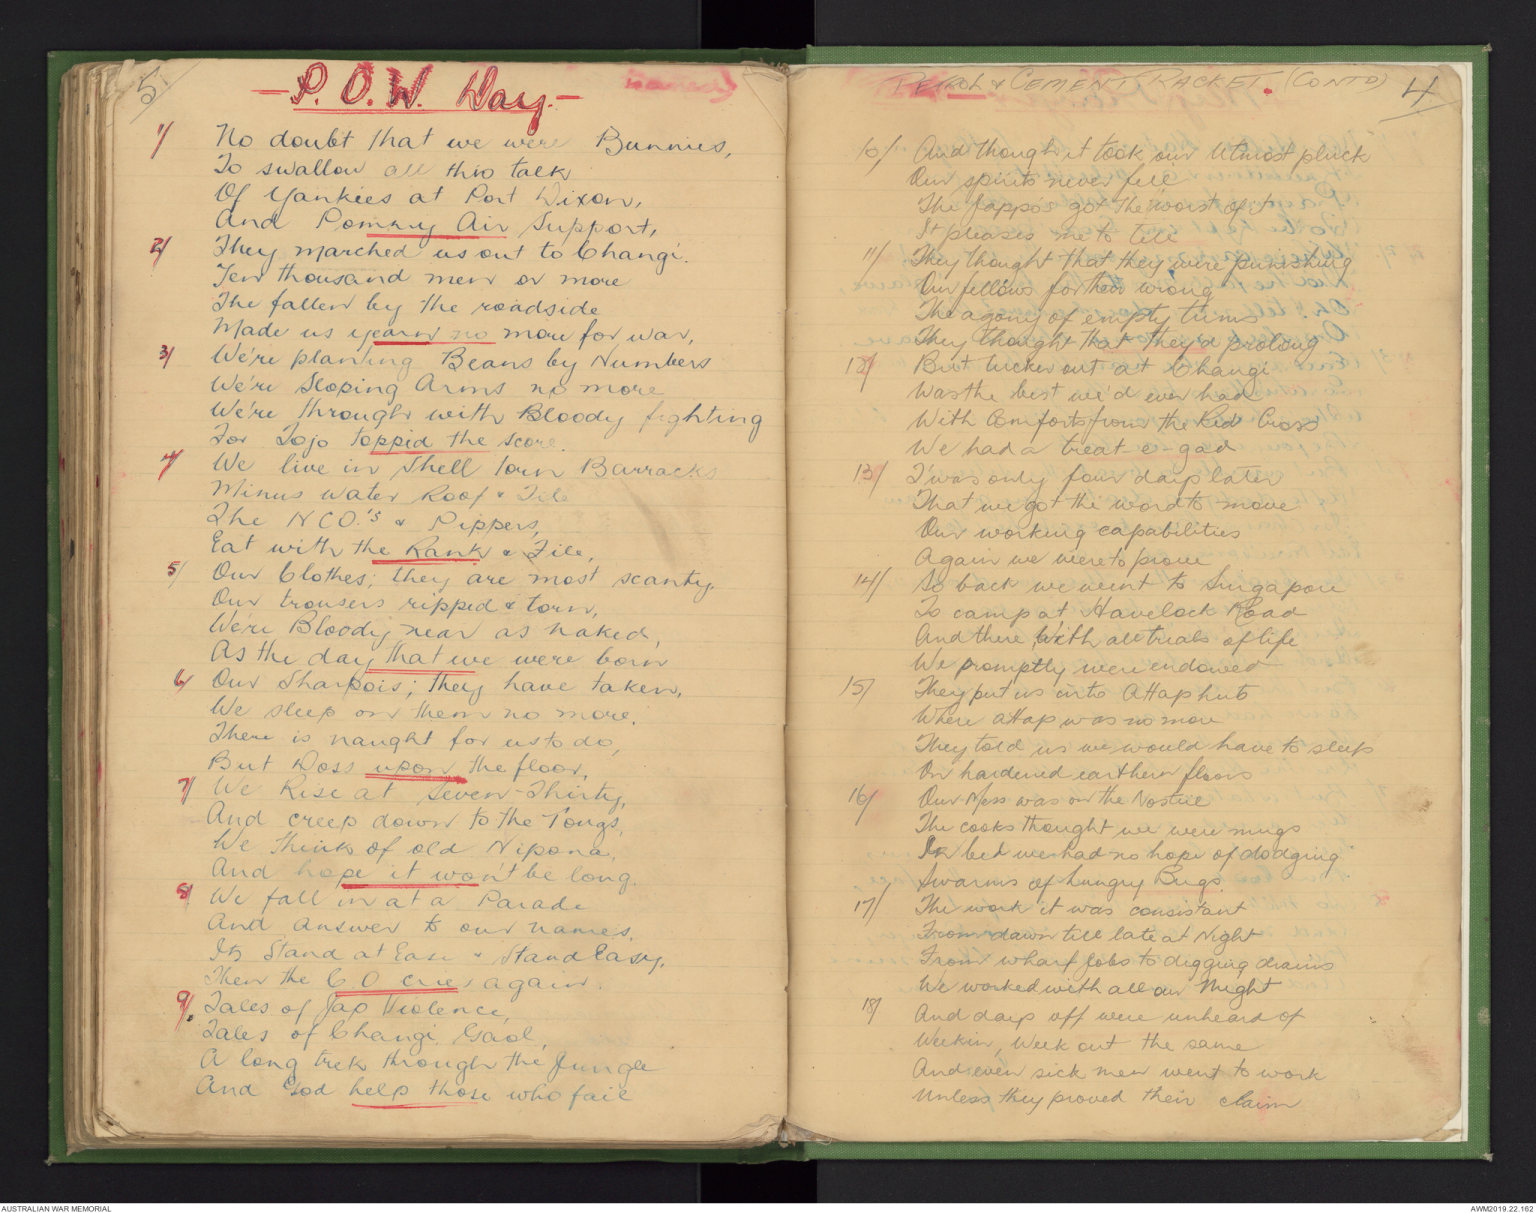 5.
P. O. W. Day.
1/ No doubt that we were Bunnies,
To swallow all this talk
Of Yankies at Port Dixon,
And Pommy Air Support,
2/ They marched us out to Changi.
Ten thousand men or more
The fallen by the roadside
Made us yearn no more for war,
3/ We're planting Beans by Numbers
We're Sloping Arms no more
We're through with Bloody fighting
For Tojo toppid the score.
4/ We live in Shell torn Barracks
Minus water Roof & Tile
The NCO.'s & Pippers,
Eat with the Rank & File,
5/ Our Clothes; they are most scanty.
Our trousers ripped & torn,
We're Bloody near as naked,
As the day that we were born
6/ Our Sharpois; they have taken,
We sleep on them no more.
There is naught for us to do,
But Doss upon the floor,
7/ We Rise at Seven-Thirty,
And creep down to the Tongs,
We think of old Nipona,
And hope it won't be long.
8/ We fall in at a Parade
And answer to our names,
Its Stand at Ease & Stand Easy,
Then the C.O cries again.
9/ Tales of Jap Violence,
Tales of Changi Gaol,
A long trek through the Jungle
And God help those who fail
PETROL & CEMENT RACKET. (CONTD) 4
10/ And though it took our utmost pluck
Our spirits never fell
The Jappos got the worst of it
It pleases me to tell
11/ They thought that they were punishing
Our fellows for their wrong
The agony of empty tums
They thought that they'd prolong
12/ But tucker out at Changi
Was the best we'd ever had
With Comforts from the Red Cross
We had a treat-e-gad
13/ T'was only four days later
That we got the word to move
Our working capabilities
Again we were to prove
14/ So back we went to Singapore
To camp at Havelock Road
And there with all trials of life
We promptly were endowed
15/ They put us into Attap huts
Where attap was no more
They told us we would have to sleep
On hardened earthern floors
16/ Our Mess was on the Nostril
The cooks thought we were mugs
In bed we had no hope of dodging
Swarms of hungry Bugs.
17/ The work it was consistant
From dawn till late at Night
From wharf jobs to digging drains
We worked with all our Might
18/ And days off were unheard of
Week in, Week out the same
And even sick men went to work
Unless they proved their claim
AUSTRALIAN WAR MEMORIAL
AWM2019.22.162